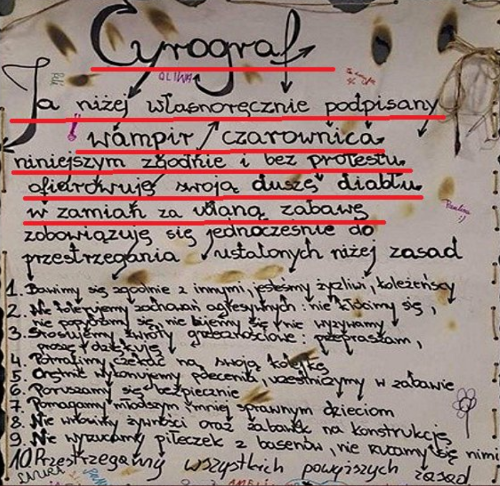 Cyrograf
OLIWA
Ja niżej własnoręcznie podpisany
wampir / czarownica
niniejszym zgodnie i bez protestu
ofiarowuję swoją duszę diabłu
w zamian za udaną zabawę
zobowiązuję się jednocześnie do
przestrzegania ustalonych niżej zasad
1. Bawimy się zgodnie z innymi, jesteśmy życzliwi, koleżeńscy
2. Nie tolerujemy zachowań agresywnych: nie kłócimy się,
nie popychamy się, nie bijemy się i nie wyzywamy
3. Stosujemy zwroty grzecznościowe: przepraszam,
proszę, dziękuję
4. Potrafimy czekać na swoją kolejkę
5. Chętnie wykonujemy polecenia, uczestniczymy w zabawie
6. Poruszamy się bezpiecznie
7. Pomagamy młodszym i mniej sprawnym dzieciom
8. Nie wnosimy żywności oraz zabawek na konstrukcję
9. Nie wyrzucamy piłeczek z basenów, nie rzucamy się nimi
10 Przestrzegamy wszystkich powyższych zasad
Paulina